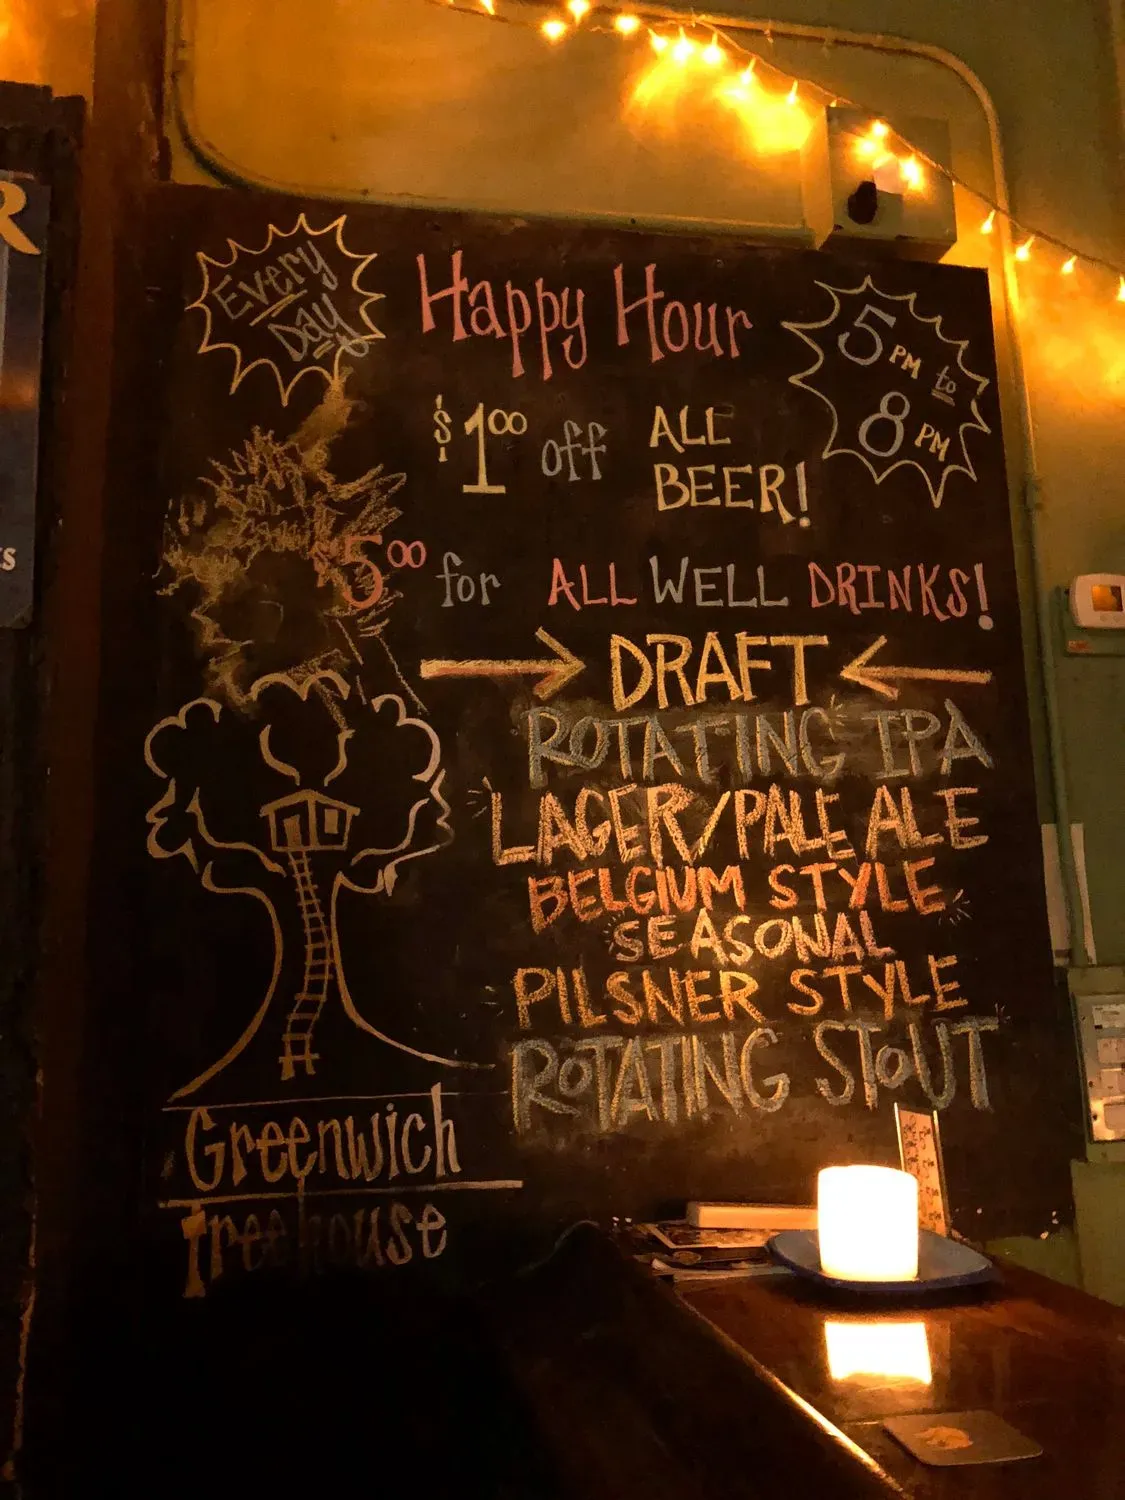 Every
Day
Happy Hour
5 PM to
8 PM
$1.00 off ALL
BEER!
$5.00 for ALL WELL DRINKS!
DRAFT
ROTATING IPA
LAGER/PALE ALE
BELGIUM STYLE
SEASONAL
PILSNER STYLE
ROTATING STOUT
Greenwich
Treehouse
R
KS